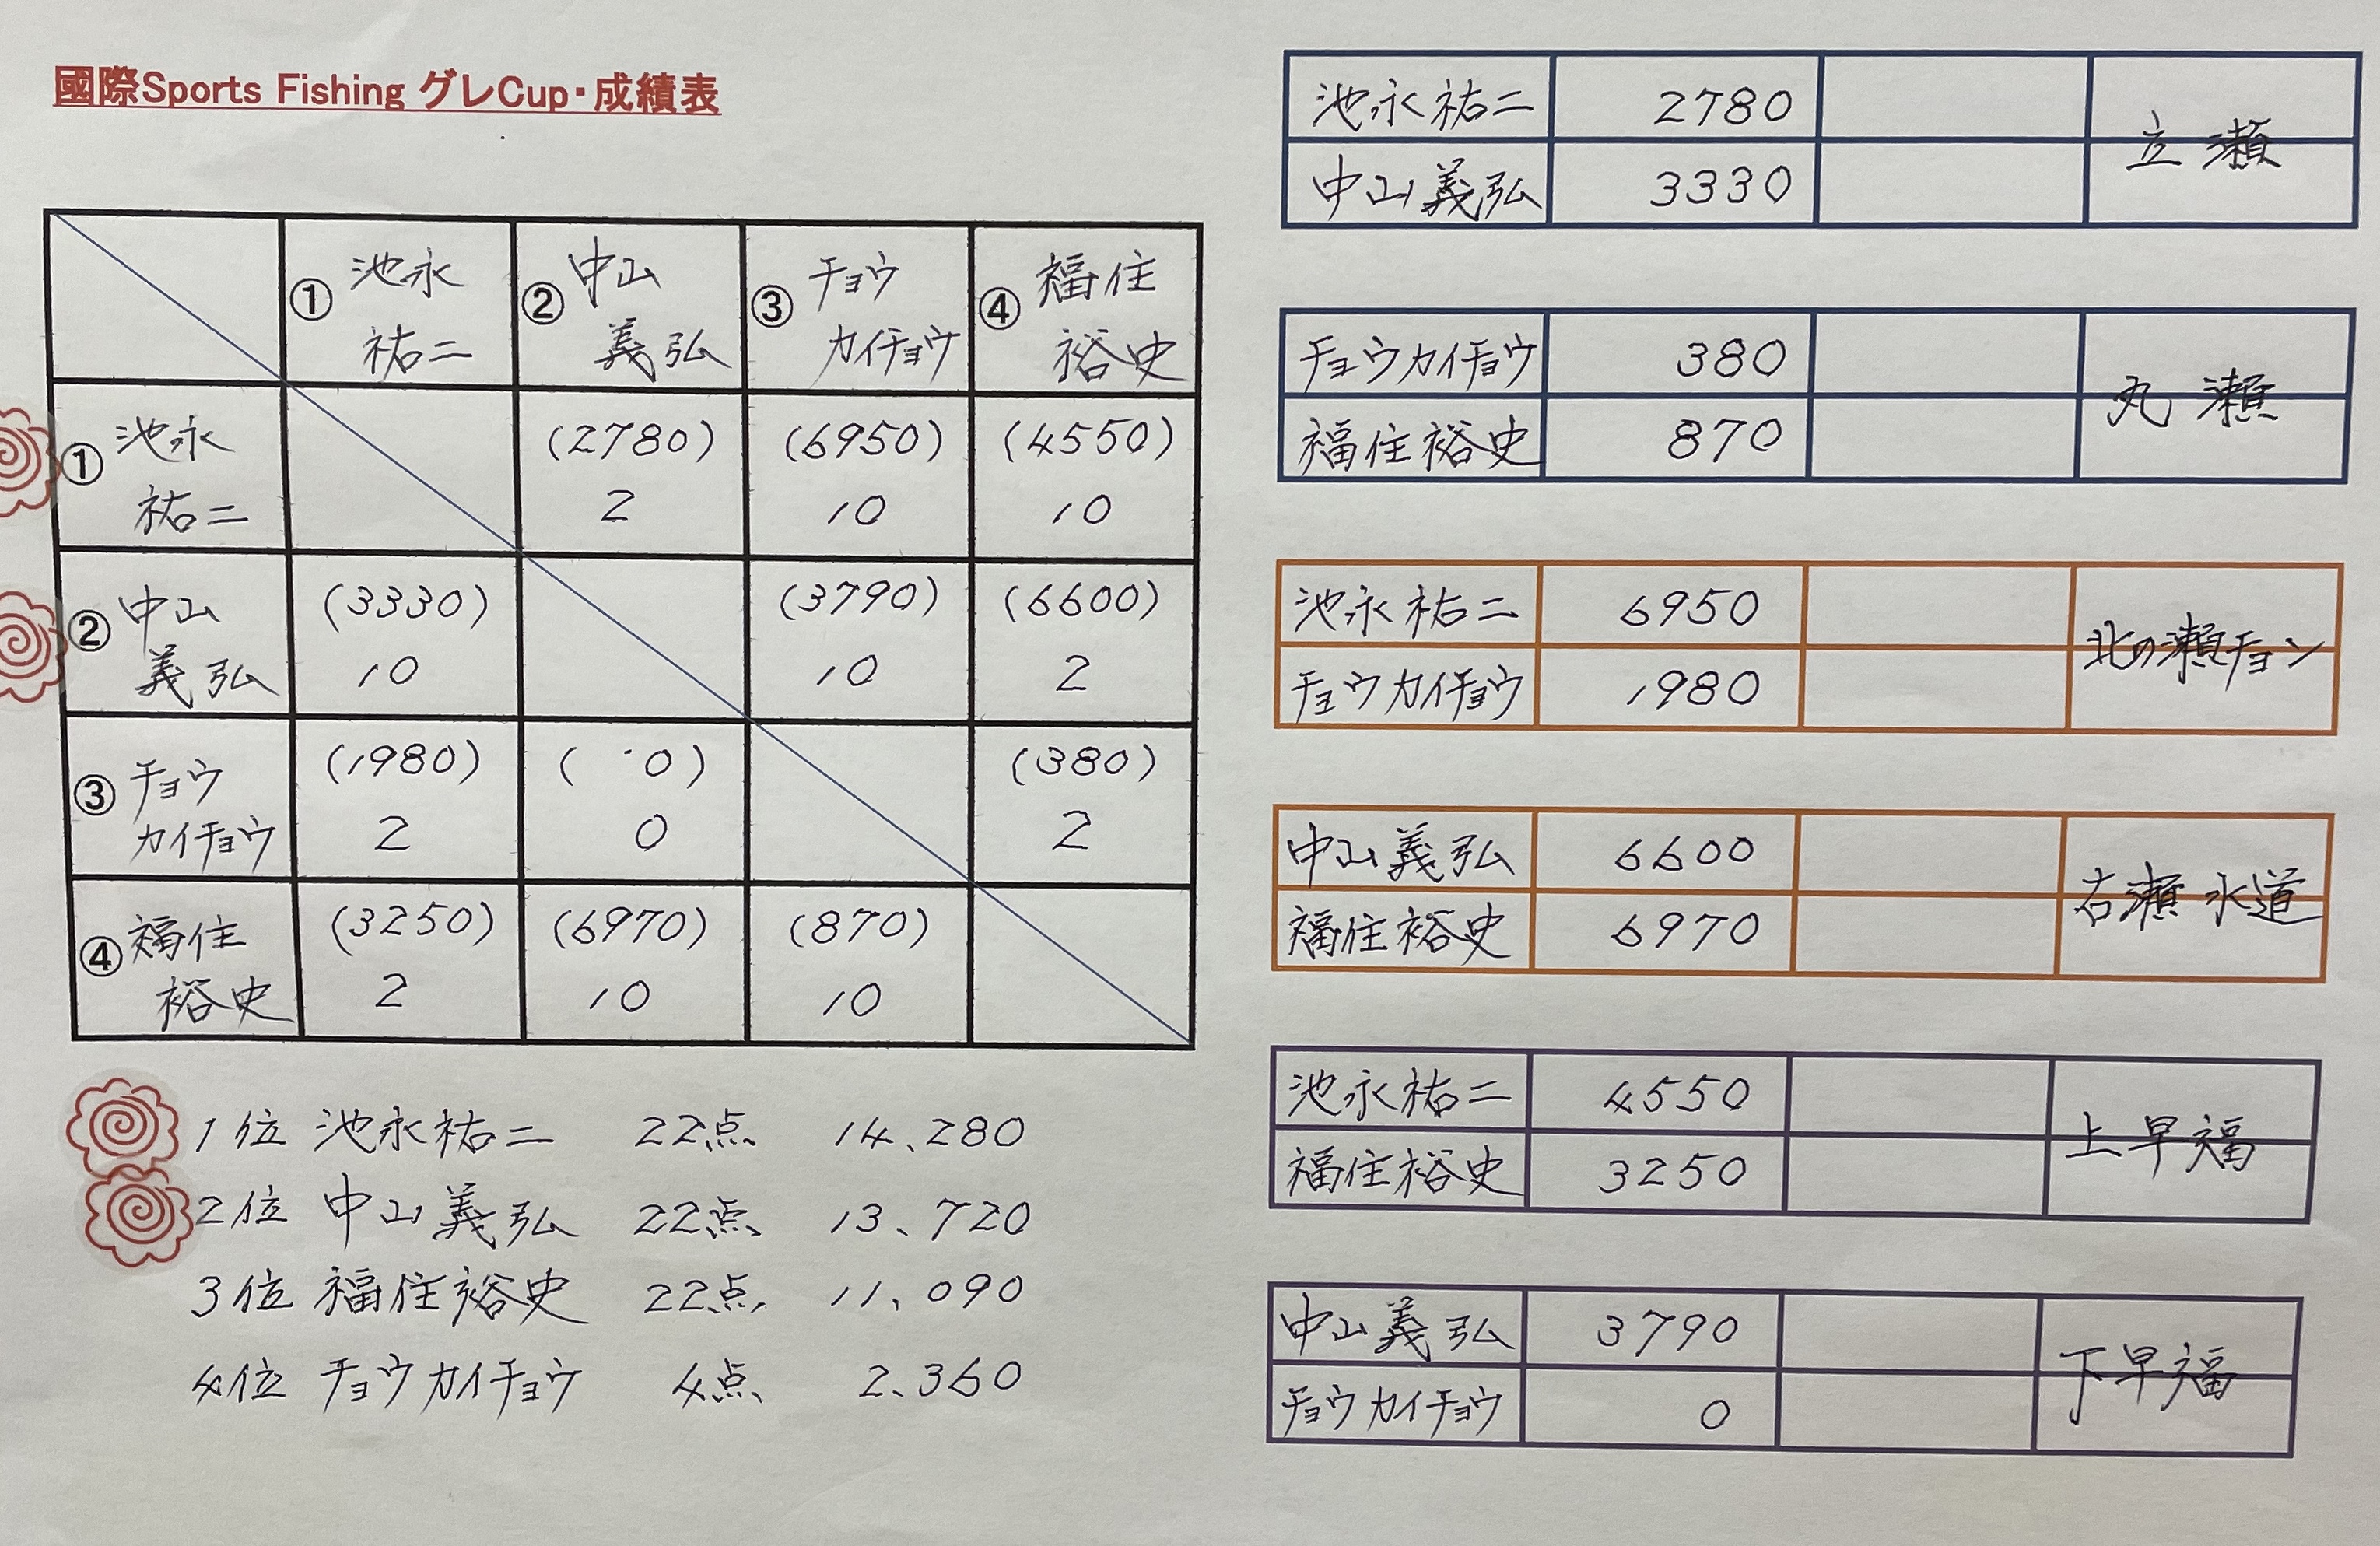 國際Sports Fishing グレCup・成績表
① 池永 祐二 ② 中山 義弘 ③ チョウ カイチョウ ④ 福住 裕史
① 池永 祐二 (2780) 2 (6950) 10 (4550) 10
② 中山 義弘 (3330) 10 (3790) 10 (6600) 2
③ チョウ カイチョウ (1980) 2 (0) 0 (380) 2
④ 福住 裕史 (3250) 2 (6970) 10 (870) 10
1位 池永祐二 22点 14、280
2位 中山義弘 22点 13、720
3位 福住裕史 22点 11、090
4位 チョウカイチョウ 4点 2、360
池永祐二 2780
立瀬
中山義弘 3330
チョウカイチョウ 380
丸瀬
福住裕史 870
池永祐二 6950
北の瀬チョン
チョウカイチョウ 1980
中山義弘 6600
右瀬 水道
福住裕史 6970
池永祐二 4550
上早福
福住裕史 3250
中山義弘 3790
下早福
チョウカイチョウ 0